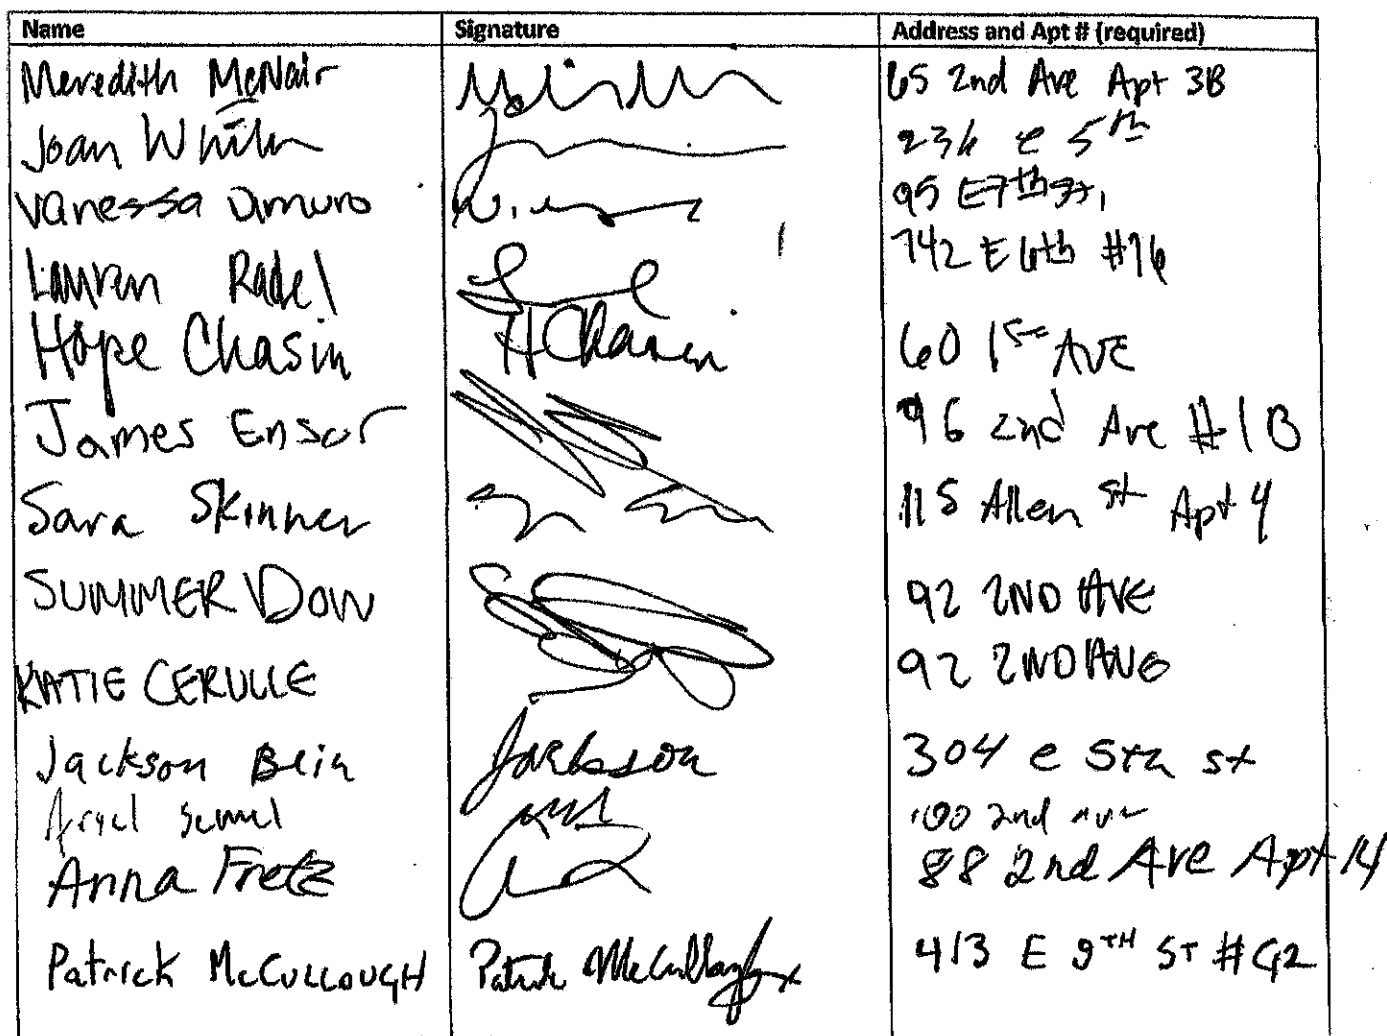 Name Signature Address and Apt # (required)
Meredith McNair 65 2nd Ave Apt 3B
Joan e 5th
Vanessa Dimuro 95 E 7th St,
Lauren Radel 742 E 6th #16
Hope Chasin H Chasin 60 1st AVE
James Ensor 96 2nd Ave #1B
Sara Skinner 115 Allen St Apt 4
SUMMER DOW 92 2ND AVE
KATIE CERULLE 92 2ND AVE
Jackson Bein Jackson 304 e 5th st
100 2nd ave
Anna Fretz 88 2nd Ave Apt 14
Patrick McCULLOUGH Patrick McCullough 413 E 9TH ST #G2